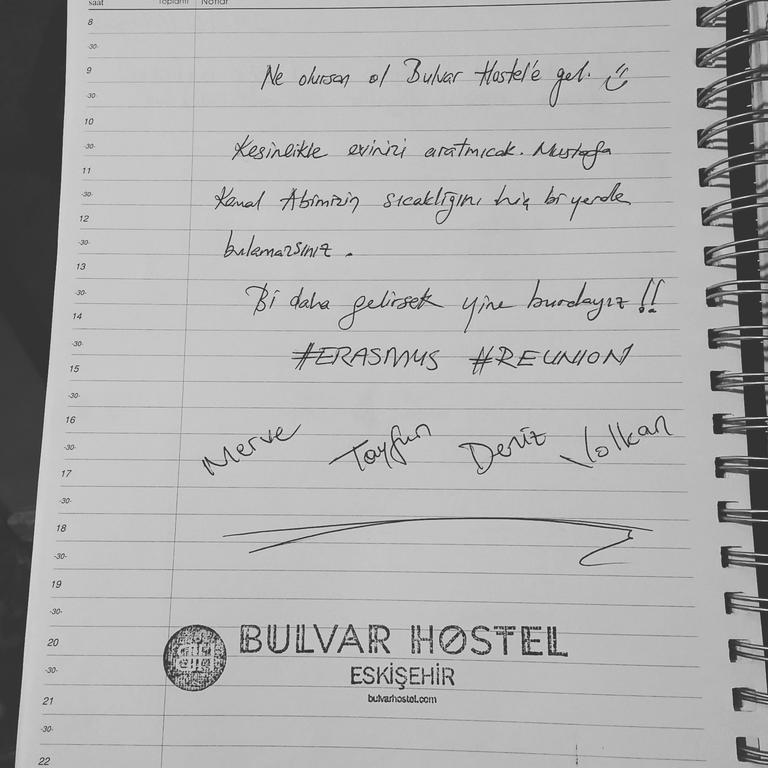 saat Toplantı Notlar
8
-30-
Ne olursan ol Bulvar Hostel'e gel. :)
9
-30-
10
-30-
Kesinlikle evinizi aratmıcak. Mustafa
11
-30-
Kemal Abimizin sıcaklığını hiç bi yerde
12
-30-
bulamazsınız.
13
-30-
Bi daha gelirsek yine burdayız!!
14
-30-
#ERASMUS #REUNION
15
-30-
16
Merve Tayfun Deniz Volkan
-30-
17
-30-
18
-30-
19
-30-
20
BULVAR HOSTEL
-30-
ESKİŞEHİR
21
bulvarhostel.com
-30-
22